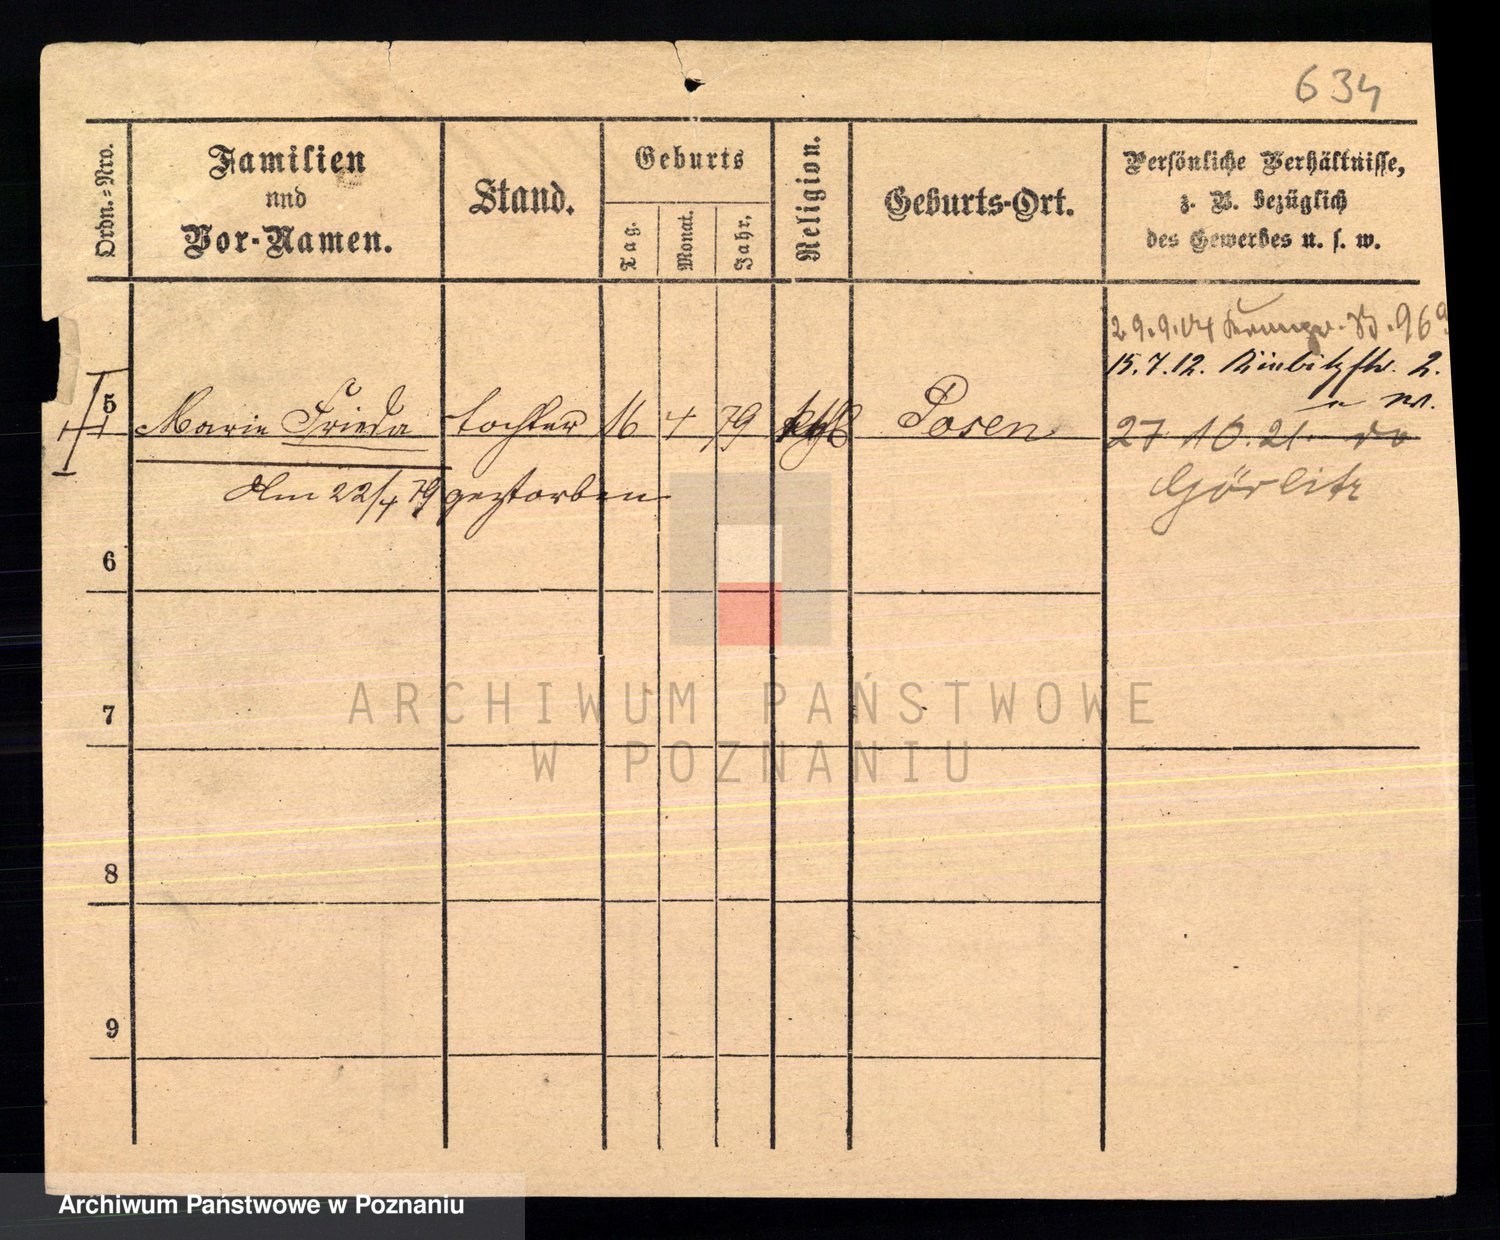 634
Ordn.-Nro.
Familien
und
Vor-Namen.
Stand.
Geburts
Tag.
Monat.
Jahr.
Religion.
Geburts-Ort.
Persönliche Verhältnisse,
z. B. bezüglich
des Gewerbes u. s. w.
29.9.04
15.7.12. 2.
5 Marie Frieda Tochter 16 4 79 kth Posen
27 10. 21. do
Görlitz
Am 22/4 79 gestorben
6
7
8
9
ARCHIWUM PAŃSTWOWE
W POZNANIU
Archiwum Państwowe w Poznaniu